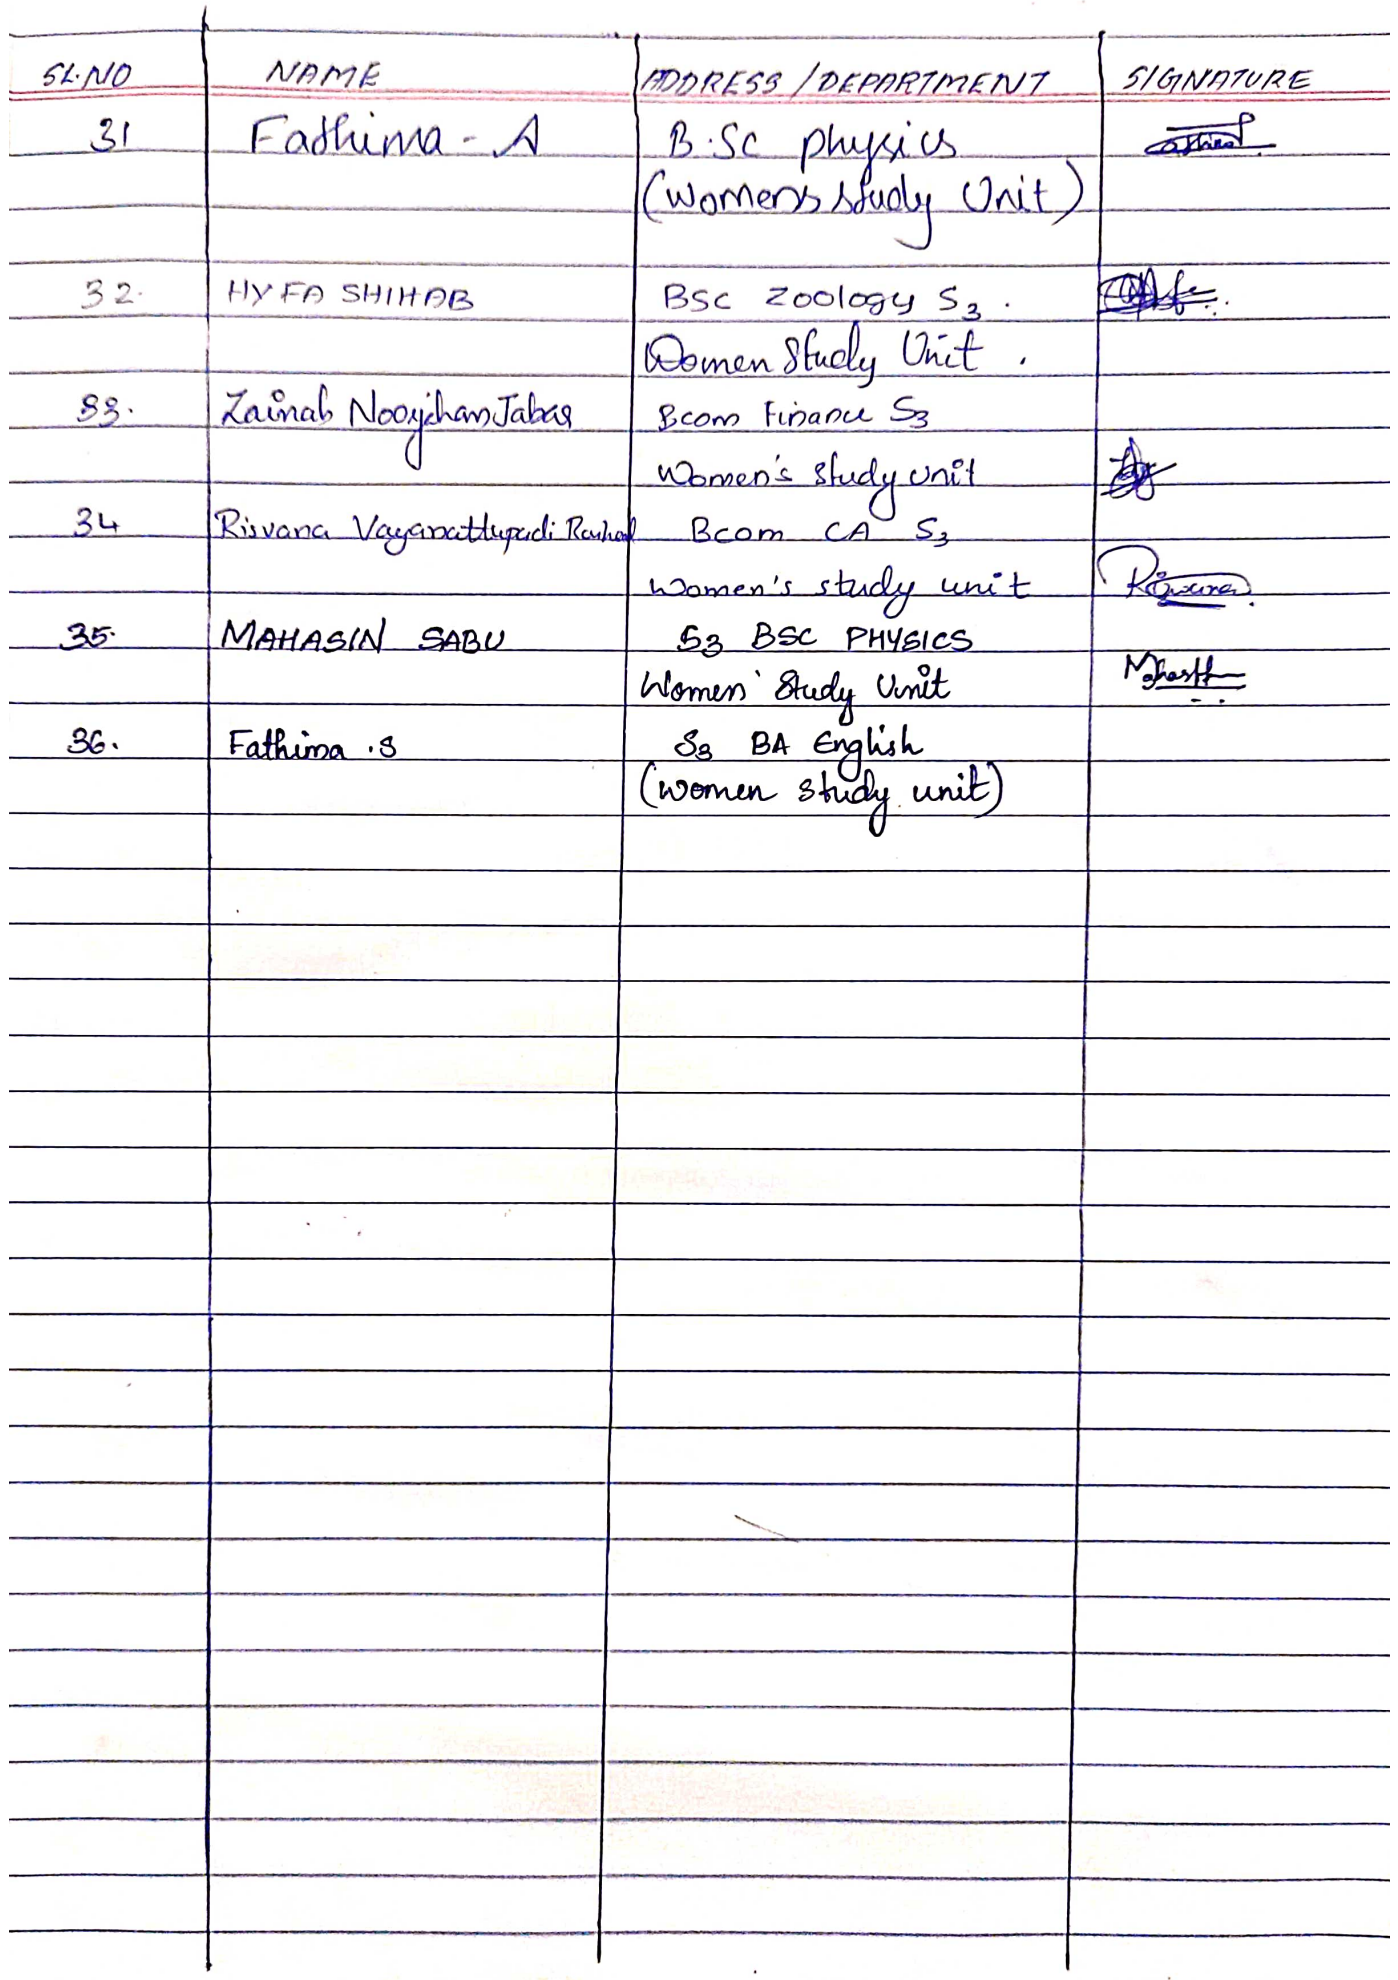 SL.NO NAME ADDRESS / DEPARTMENT SIGNATURE
31 Fathima - A B.Sc physics
(Womens study Unit)
32. HYFA SHIHAB BSC Zoology S3 .
Women Study Unit .
33. Zainab Noorjehan Jabar Bcom Finance S3
Women's study unit
34 Risvana Vayanattupadi Bcom CA S3
Women's study unit Risvana
35. MAHASIN SABU S3 BSC PHYSICS
Women' Study Unit
36. Fathima .S S3 BA English
(women study unit)